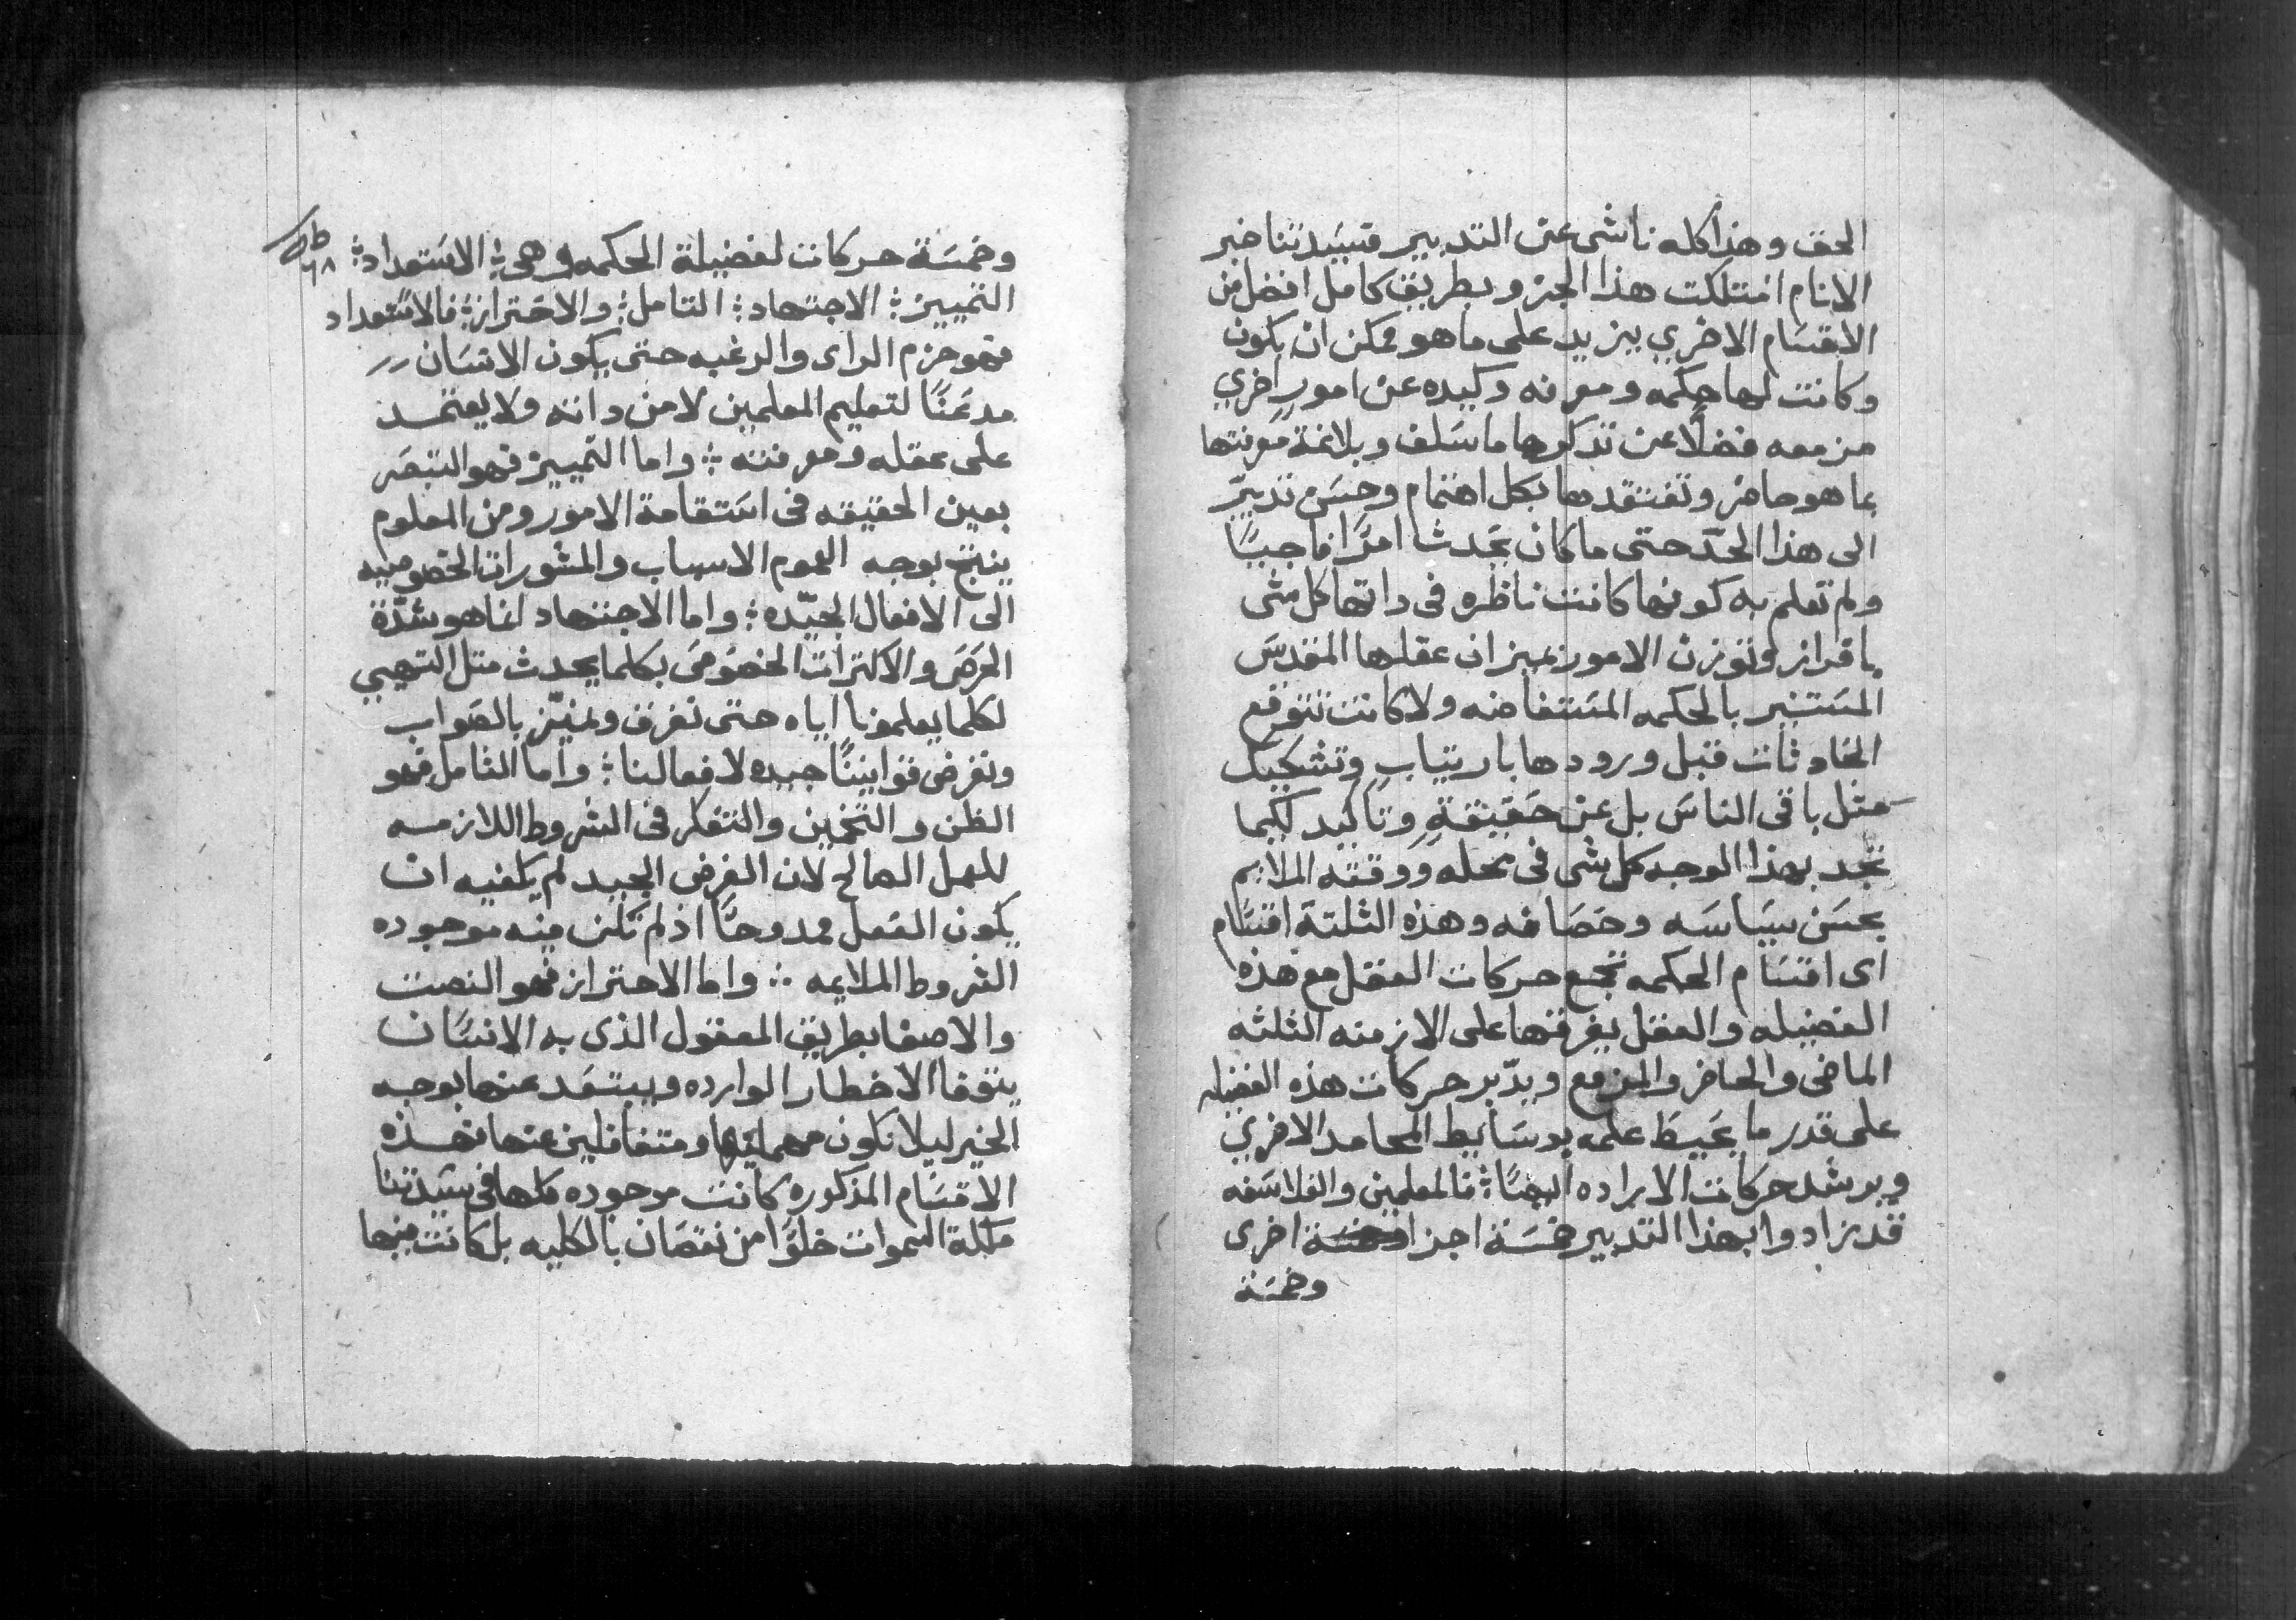 الحق وهذا كله ناشى عن التدبير فسيدتنا خير
الانام امتلكت هذا الجزو بطريق كامل افضل من
الاقسام الاخري يزيد على ما هو ممكن ان يكون
وكانت لها حكمه ومعرفه وكيده عن امور اخري
مزمعه فضلًا عن تذكرها ما سلف وبلاغة معرفتها
بما هو حاضر وتفتقدها بكل اهتمام وحسن تدبير
الى هذا الحدّ حتى ما كان يحدث امرًا فاجيًا
ولم تعلم به كونها كانت ناظره فى داتها كل شى
بافراز وتوزن الامور بميزان عقلها المقدس
المستنير بالحكمه المستفاضه ولا كانت تتوقع
الحادثات قبل ورودها بارتياب وتشكيك
مثل باقى الناس بل عن حقيقةٍ وتاكيد لكيما
تجد بهذا الوجه كل شى فى محله ووقته الملايم
بحسن سياسه وحصافه وهذه الثلثة اقسام
اى اقسام الحكمه تجمع حركات العقل مع هذه
الفضيله والعقل يفرقها على الازمنه الثلثه
الماضى والحاضر والمزمع ويدّبر حركات هذه الفضيله
على قدر ما يحيط علمه بوسايط المحامد الاخري
ويرشد حركات الاراده ايضًا ؛ فالمعلمين والفلاسفه
قد زادوا بهذا التدبير خمسة اجزا اخرى
وخمسة
وخمسة حركات لفضيلة الحكمه وهى ؛ الاستعداد ؛
٦٨
التمييز ؛ الاجتهاد ؛ التامل ؛ والاحتراز ؛ فالاستعداد
فهو حزم الراى والرغبه حتى يكون الانسان
مدعنًا لتعليم المعلمين لا من داته ولا يعتمد
على عقله ومعرفته ؛ واما التمييز فهو التبصر
بعين الحقيقه فى استقامة الامور ومن المعلوم
ينتج بوجه العموم الاسباب والمشورات الخصوصيه
الى الافعال الجيّده ؛ واما الاجتهاد انما هو شدّة
الحرص والاكترات الخصوصى بكلما يحدث متل التهيي
لكلما يعلمونا اياه حتى نفرق ونميّز بالصواب
ونفرض قوانينًا جيده لافعالنا ؛ واما التامل فهو
الظن والتخمين والتفكر فى الشروط اللازمه
للعمل الصالح لان الغرض الجيد لم يكفيه ان
يكون الفعل ممدوحًا اذ لم تكن فيه موجوده
الشروط الملايمه ؛ واما الاحتراز فهو النصت
والاصغا بطريق المعقول الذى به الانسان
يتوقا الاخطار الوارده ويبتعد عنها بوجه
الخير ليلا نكون مهملينها ومتغافلين عنها فهذه
الاقسام المذكوره كانت موجوده كلها فى سيدتنا
ملكة السموات خلوًا من نقصان بالكليه بل كانت فيها